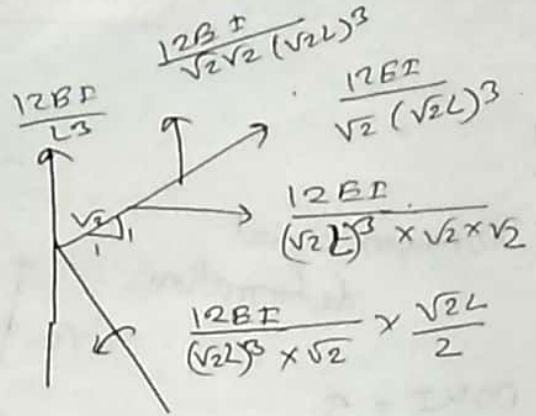 12EI / √2√2 (√2L)^3
12EI / L3
12EI / √2 (√2L)^3
√2
1
1
12EI / (√2L)^3 × √2 × √2
12EI / (√2L)^3 × √2 × √2L / 2